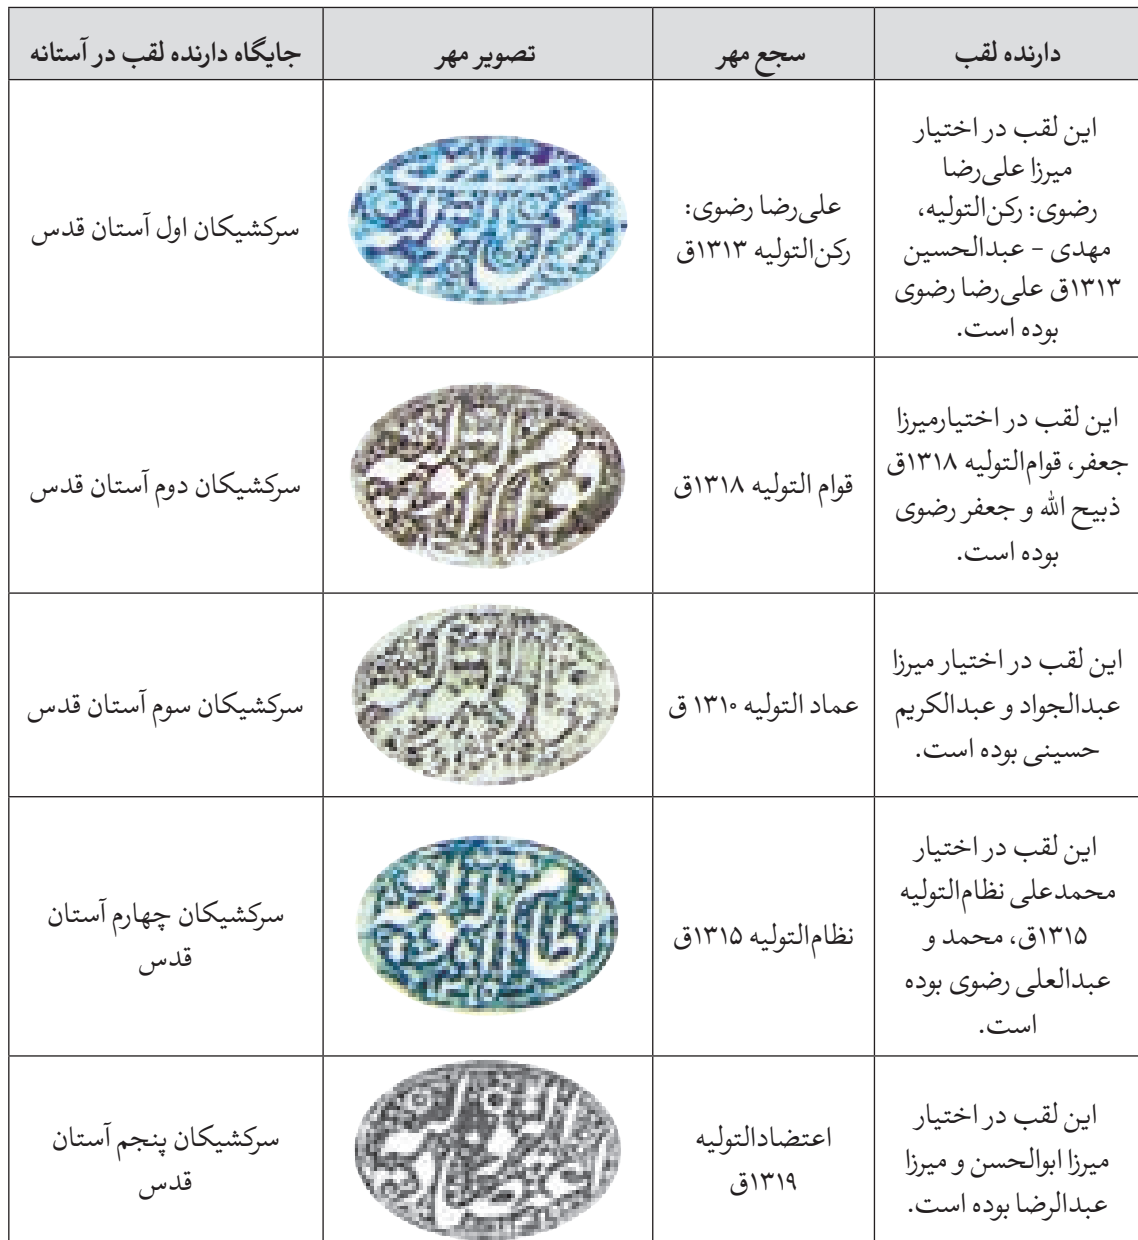 دارنده لقب
سجع مهر
تصویر مهر
جایگاه دارنده لقب در آستانه
این لقب در اختیار
میرزا علی‌رضا
رضوی: رکن‌التولیه،
مهدی - عبدالحسین
۱۳۱۳ق علی‌رضا رضوی
بوده است.
علی‌رضا رضوی:
رکن‌التولیه ۱۳۱۳ق
سرکشیکان اول آستان قدس
این لقب در اختیارمیرزا
جعفر، قوام‌التولیه ۱۳۱۸ق
ذبیح الله و جعفر رضوی
بوده است.
قوام التولیه ۱۳۱۸ق
سرکشیکان دوم آستان قدس
این لقب در اختیار میرزا
عبدالجواد و عبدالکریم
حسینی بوده است.
عماد التولیه ۱۳۱۰ ق
سرکشیکان سوم آستان قدس
این لقب در اختیار
محمدعلی نظام‌التولیه
۱۳۱۵ق، محمد و
عبدالعلی رضوی بوده
است.
نظام‌التولیه ۱۳۱۵ق
سرکشیکان چهارم آستان
قدس
این لقب در اختیار
میرزا ابوالحسن و میرزا
عبدالرضا بوده است.
اعتضادالتولیه
۱۳۱۹ق
سرکشیکان پنجم آستان
قدس